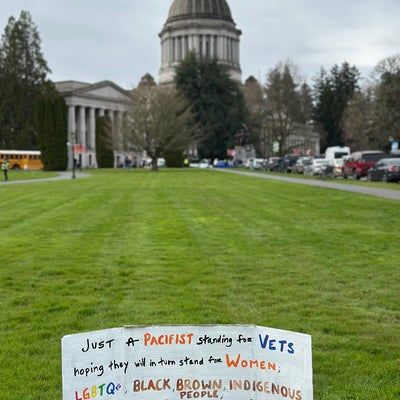 JUST A PACIFIST standing for VETS
hoping they will in turn stand for WOMEN,
LGBTQ+, BLACK, BROWN, INDIGENOUS
PEOPLE,